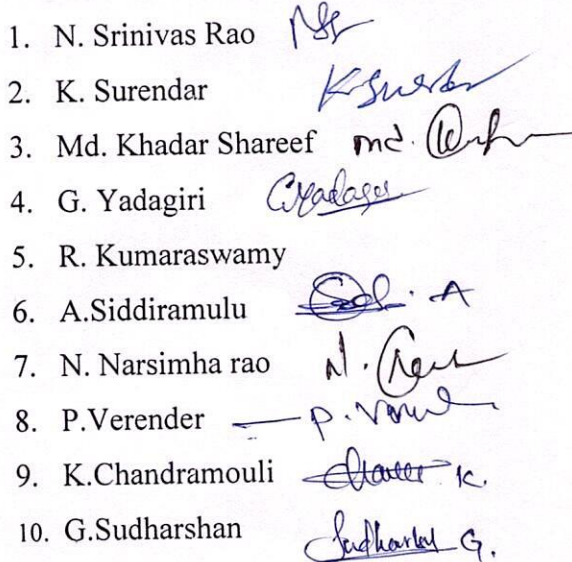 1. N. Srinivas Rao
2. K. Surendar K Surendar
3. Md. Khadar Shareef md.
4. G. Yadagiri G Yadagiri
5. R. Kumaraswamy
6. A.Siddiramulu A
7. N. Narsimha rao N.
8. P.Verender P.
9. K.Chandramouli K.
10. G.Sudharshan Sudharshan G.